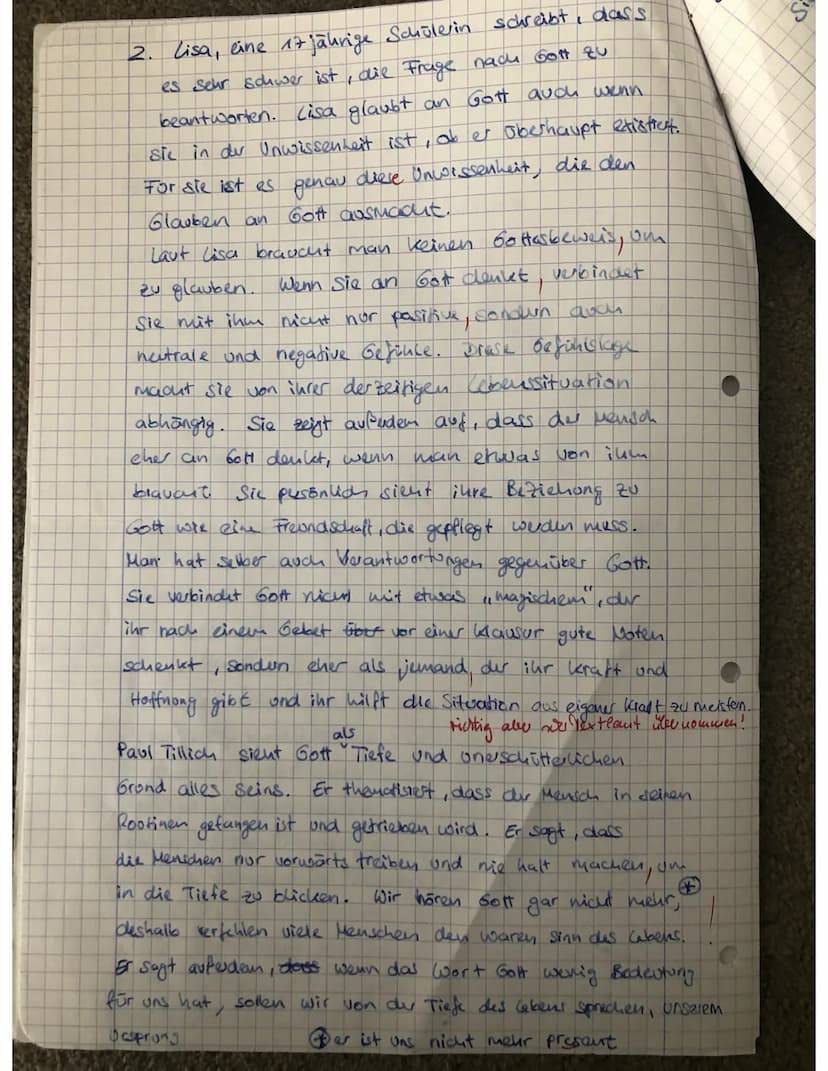 2. Lisa, eine 17 jährige Schülerin schreibt, dass
es sehr schwer ist, die Frage nach Gott zu
beantworten. Lisa glaubt an Gott auch wenn
sie in der Unwissenheit ist, ob er überhaupt existiert.
Für sie ist es genau diese Unwissenheit, die den
Glauben an Gott ausmacht.
Laut Lisa braucht man keinen Gottesbeweis, um
zu glauben. Wenn Sie an Gott denket, verbindet
Sie mit ihm nicht nur positive, sondern auch
neutrale und negative Gefühle. Diese Gefühlslage
macht sie von ihrer derzeitigen Lebenssituation
abhängig. Sie zeigt außerdem auf, dass der Mensch
eher an Gott denket, wenn man etwas von ihm
braucht. Sie persönlich sieht ihre Beziehung zu
Gott wie eine Freundschaft, die gepflegt werden muss.
Man hat selber auch Verantwortungen gegenüber Gott.
Sie verbindet Gott nicht mit etwas „magischem", der
ihr nach einem Gebet vor einer Klausur gute Noten
schenkt, sondern eher als jemand, der ihr Kraft und
Hoffnung gibt und ihr hilft die Situation aus eigener Kraft zu meistern.
richtig aber wie Textlaut übernommen!
Paul Tillich sieht Gott als Tiefe und unerschütterlichen
Grund alles Seins. Er thematisiert, dass der Mensch in seinen
Routinen gefangen ist und getrieben wird. Er sagt, dass
die Menschen nur vorwärts treiben und nie halt machen, um
in die Tiefe zu blicken. Wir hören Gott gar nicht mehr, ⊕
deshalb verfehlen viele Menschen den waren Sinn des Lebens. !
Er sagt außerdem, dass wenn das Wort Gott wenig Bedeutung
für uns hat, sollen wir von der Tiefe des Lebens sprechen, unserem
Ursprung ⊕ er ist uns nicht mehr präsent